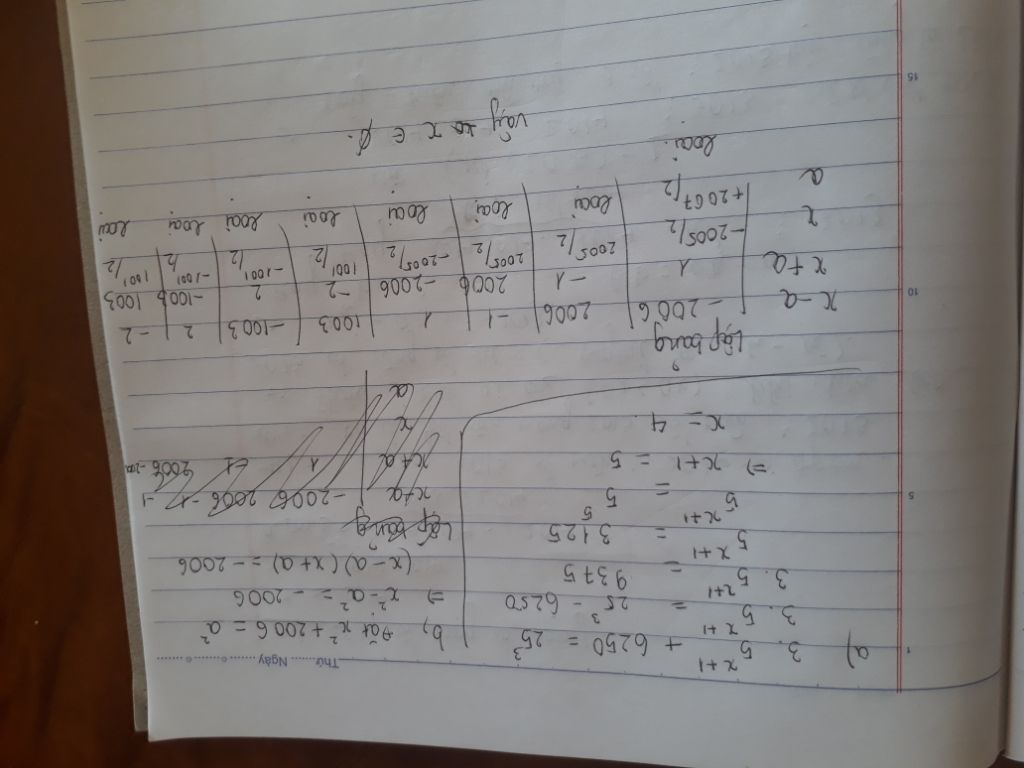 Thứ Ngày
a) 3. 5^(x+1) + 6250 = 25^3
3. 5^(x+1) = 25^3 - 6250
3. 5^(x+1) = 9375
5^(x+1) = 3125
5^(x+1) = 5^5
=> x+1 = 5
x = 4
b, Đặt x^2 + 2006 = a^2
=> x^2 - a^2 = -2006
(x-a)(x+a) = -2006
Lập bảng
x+a -2006 2006 -1 -1
x+a 1
x
a
Lập bảng
x-a -2006 2006 -1 1 1003 -1003 2 -2
x+a 1 -1 2006 -2006 -2 2 -1003 1003
x -2005/2 2005/2 2005/2 -2005/2 1001/2 -1001/2 -1001/2 1001/2
a +2007/2 loại loại loại loại loại loại loại
loại
Vậy x ∈ ∅.
1
5
10
15